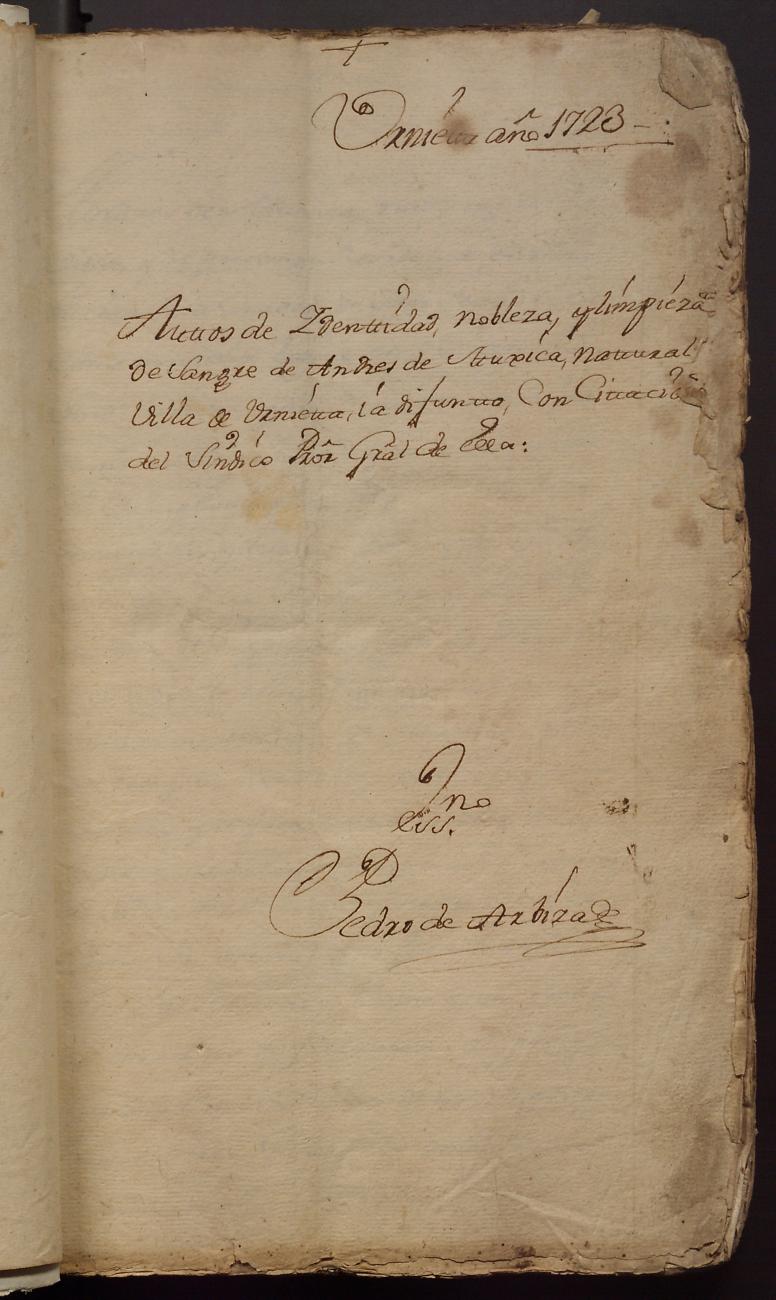 +
Urnieta año 1723
Auttos de Identtidad, nobleza, y limpieza
de Sangre de Andres de Atuxica, Natural
Villa de Urnietta, la difuntto, Con Cittación
del Sindico Pror Gral de Ella:
Jno
ess.
Pedro de Arbiza